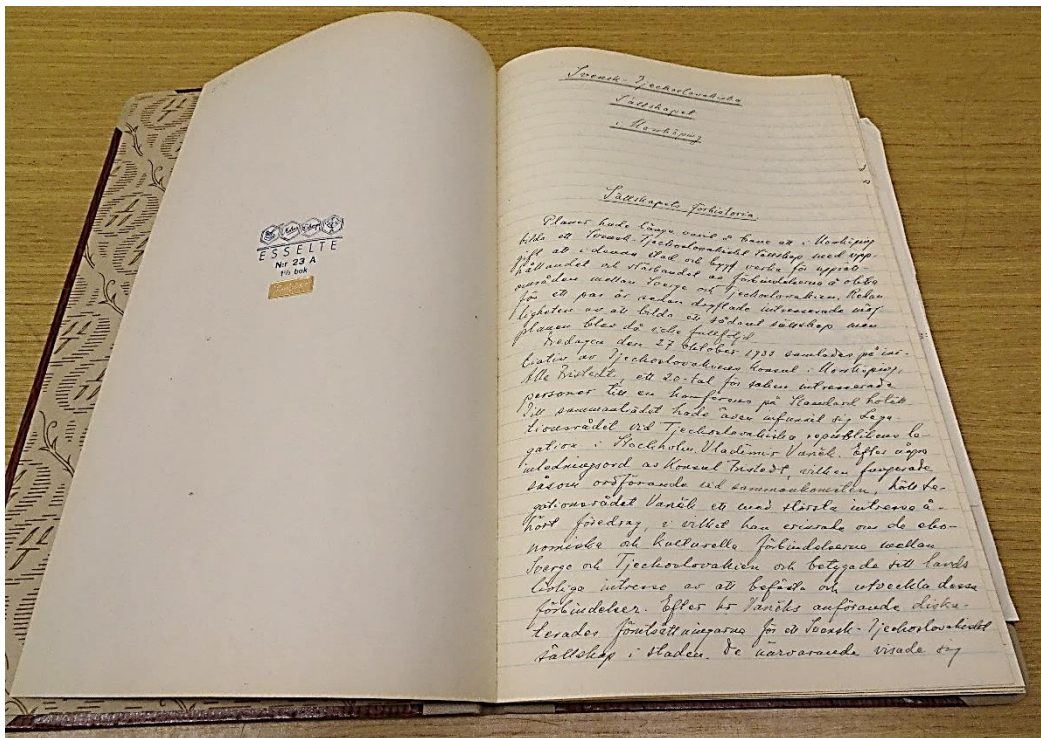 ESSELTE
Nr 23 A
1½ bok
Svensk-Tjechoslovakiska
Sällskapet
i Norrköping
Sällskapets förhistoria
Planer hade länge varit å bane att i Norrköping
bilda ett Svensk-Tjechoslovakiskt Sällskap med upp-
gift att i denna stad och bygd verka för upprätt-
hållandet och stärkandet av förbindelserna å olika
områden mellan Sverge och Tjechoslovakien. Redan
för ett par år sedan dryftade intresserade möj-
ligheten av att bilda ett sådant sällskap men
planen blev då icke fullföljd.
Fredagen den 27 oktober 1933 samlades på ini-
tiativ av Tjechoslovakiens Konsul i Norrköping,
Fristedt, ett 20-tal för saken intresserade
personer till en konferens på Standard hotell.
Till sammanträdet hade även infunnit sig Lega-
tionsrådet vid Tjechoslovakiska republikens le-
gation i Stockholm, Vladimir Vanék. Efter några
inledningsord av Konsul Fristedt, vilken fungerade
såsom ordförande vid sammankomsten, höll Le-
gationsrådet Vanék ett med största intresse å-
hört föredrag, i vilket han erinrade om de eko-
nomiska och kulturella förbindelserna mellan
Sverge och Tjechoslovakien och betygade sitt lands
livliga intresse av att befästa och utveckla dessa
förbindelser. Efter hr Vanéks anförande disku-
terades förutsättningarna för ett Svensk-Tjechoslovakiskt
sällskap i staden. De närvarande visade sig